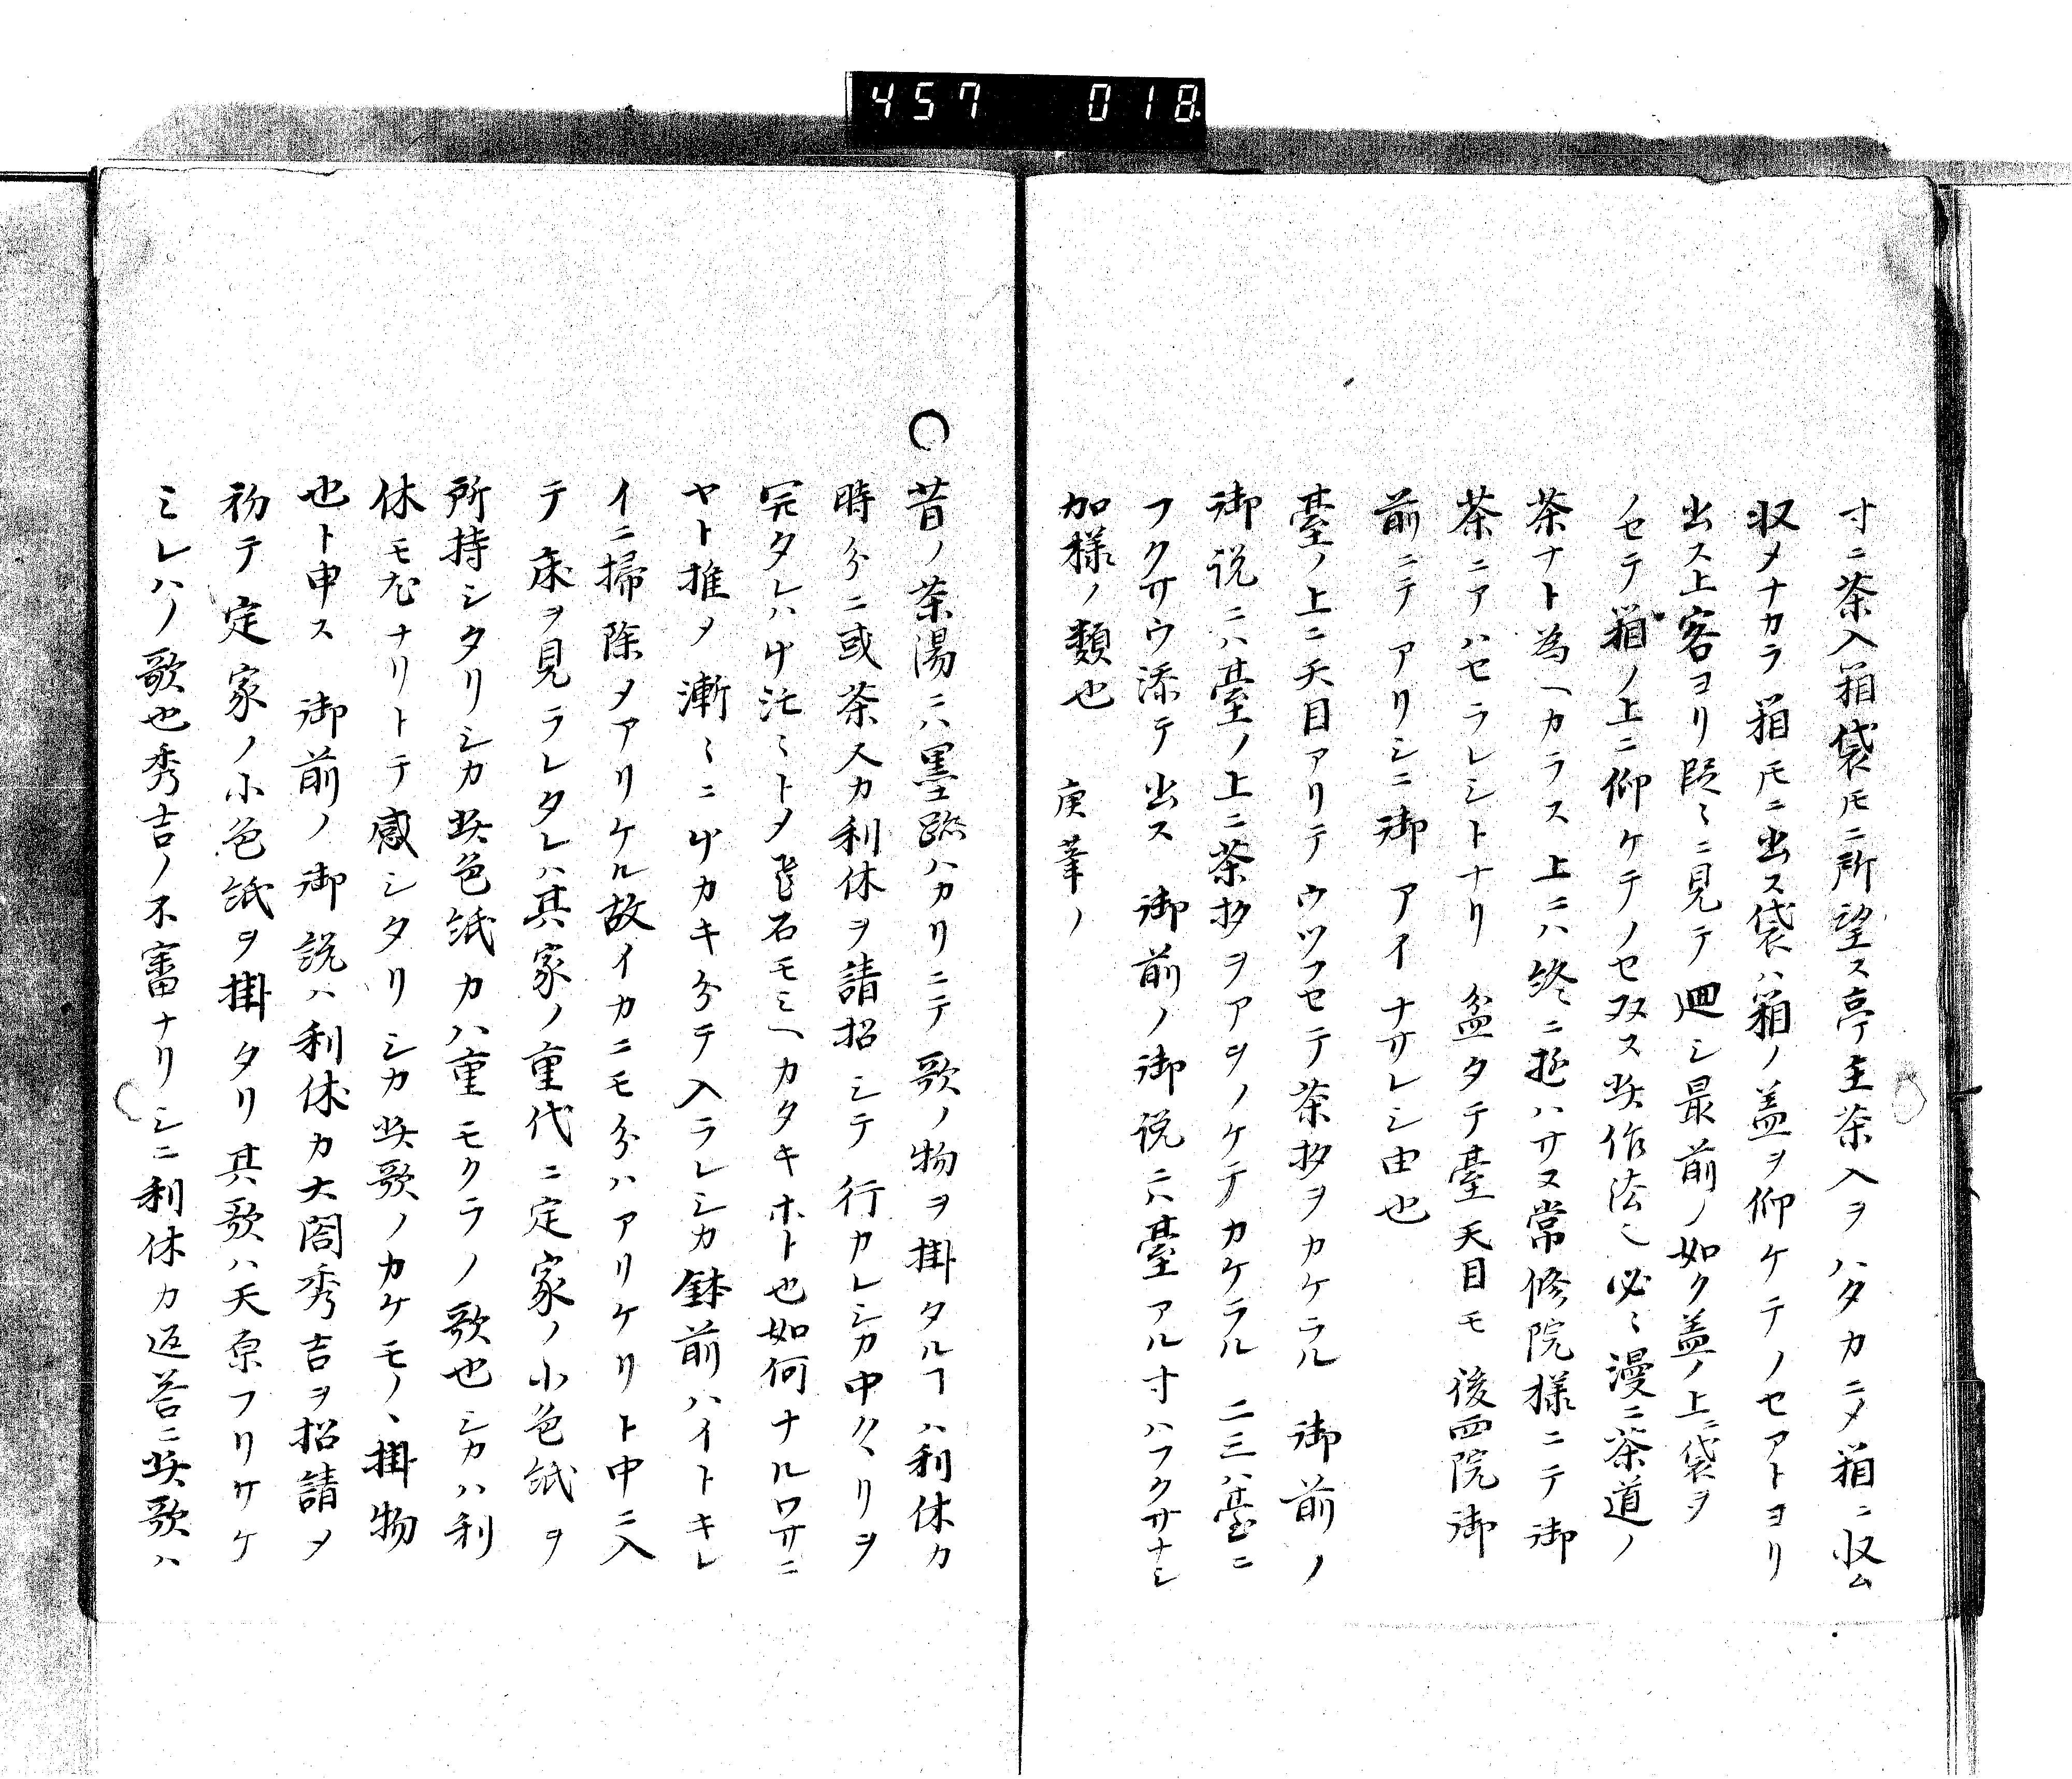 457 018
寸ニ茶入箱袋ㇳモニ所望ス亭主茶入ヲハタカニㇱテ箱ニ収ム
収メナカラ箱ㇳモニ出ス袋ハ箱ノ蓋ヲ仰ケテノセアトヨリ
出ス上客ヨリ段〻ニ見テ廻シ最前ノ如ク蓋ノ上ニ袋ヲ
ノセテ箱ノ上ニ仰ケテノセ収ス此作法也必〻漫ニ茶道ノ
茶ナト為ヘカラス上ニハ終ニ遊ハサヌ常修院様ニテ御
茶ニアハセラレシトナリ盆タテ臺天目モ後西院御
前ニテアリシニ御アイナサレシ由也
臺ノ上ニ天目アリテウツフセテ茶杓ヲカケラル 御前ノ
御説ニハ臺ノ上ニ茶杓ヲアヲノケテカケラル 二三ハ臺ニ
フクサウ添テ出ス 御前ノ御説ニハ臺アル寸ハフクサナシ
加様ノ類也 庚葦ノ
〇昔ノ茶湯ニハ墨跡ハカリニテ歌ノ物ヲ掛タルヿハ利休カ
時分ニ或茶人カ利休ヲ請招シテ行カレシカ中クヽリヲ
完タレハ草茫〻トㇱテ飛石モミヘカタキホト也如何ナルワサニ
ヤト推ㇱテ漸〻ニ草カキ分テ入ラレシカ鉢前ハイトキレ
イニ掃除ㇱテアリケル故イカニモ分ハアリケリト中ニ入
テ床ヲ見ラレタレハ其家ノ重代ニ定家ノ小色紙ヲ
所持シタリシカ此色紙カハ重モクラノ歌也シカハ利
休モ尤ナリトテ感シタリシカ此歌ノカケモノヽ掛物
也ト申ス 御前ノ御説ハ利休カ大閤秀吉ヲ招請ㇱテ
初テ定家ノ小色紙ヲ掛タリ其歌ハ天原フリサケ
ミレハノ歌也秀吉ノ不審ナリシニ利休カ返答ニ此歌ハ